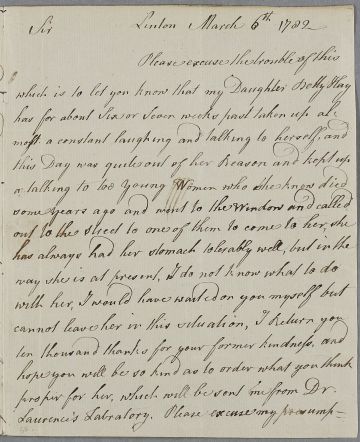 Sir Linton March 6th. 1782
Please excuse the trouble of this
which is to let you know that my Daughter Betty Hay
has for about Six or Seven weeks past taken up al-
most a constant laughing and talking to herself, and
this Day was quite out of her Reason and kept up
a talking to two young Women who she knows died
some years ago and went to the Windows and called
out to the street to one of them to come to her, she
has always had her stomach tolerably well, but in the
way she is at present, I do not know what to do
with her, I would have waited on you myself but
cannot leave her in this situation, I Return you
ten thousand thanks for your former kindness, and
hope you will be so kind as to order what you think
proper for her, which will be sent me from Dr.
Laurence's Labratory. Please excuse my presump=